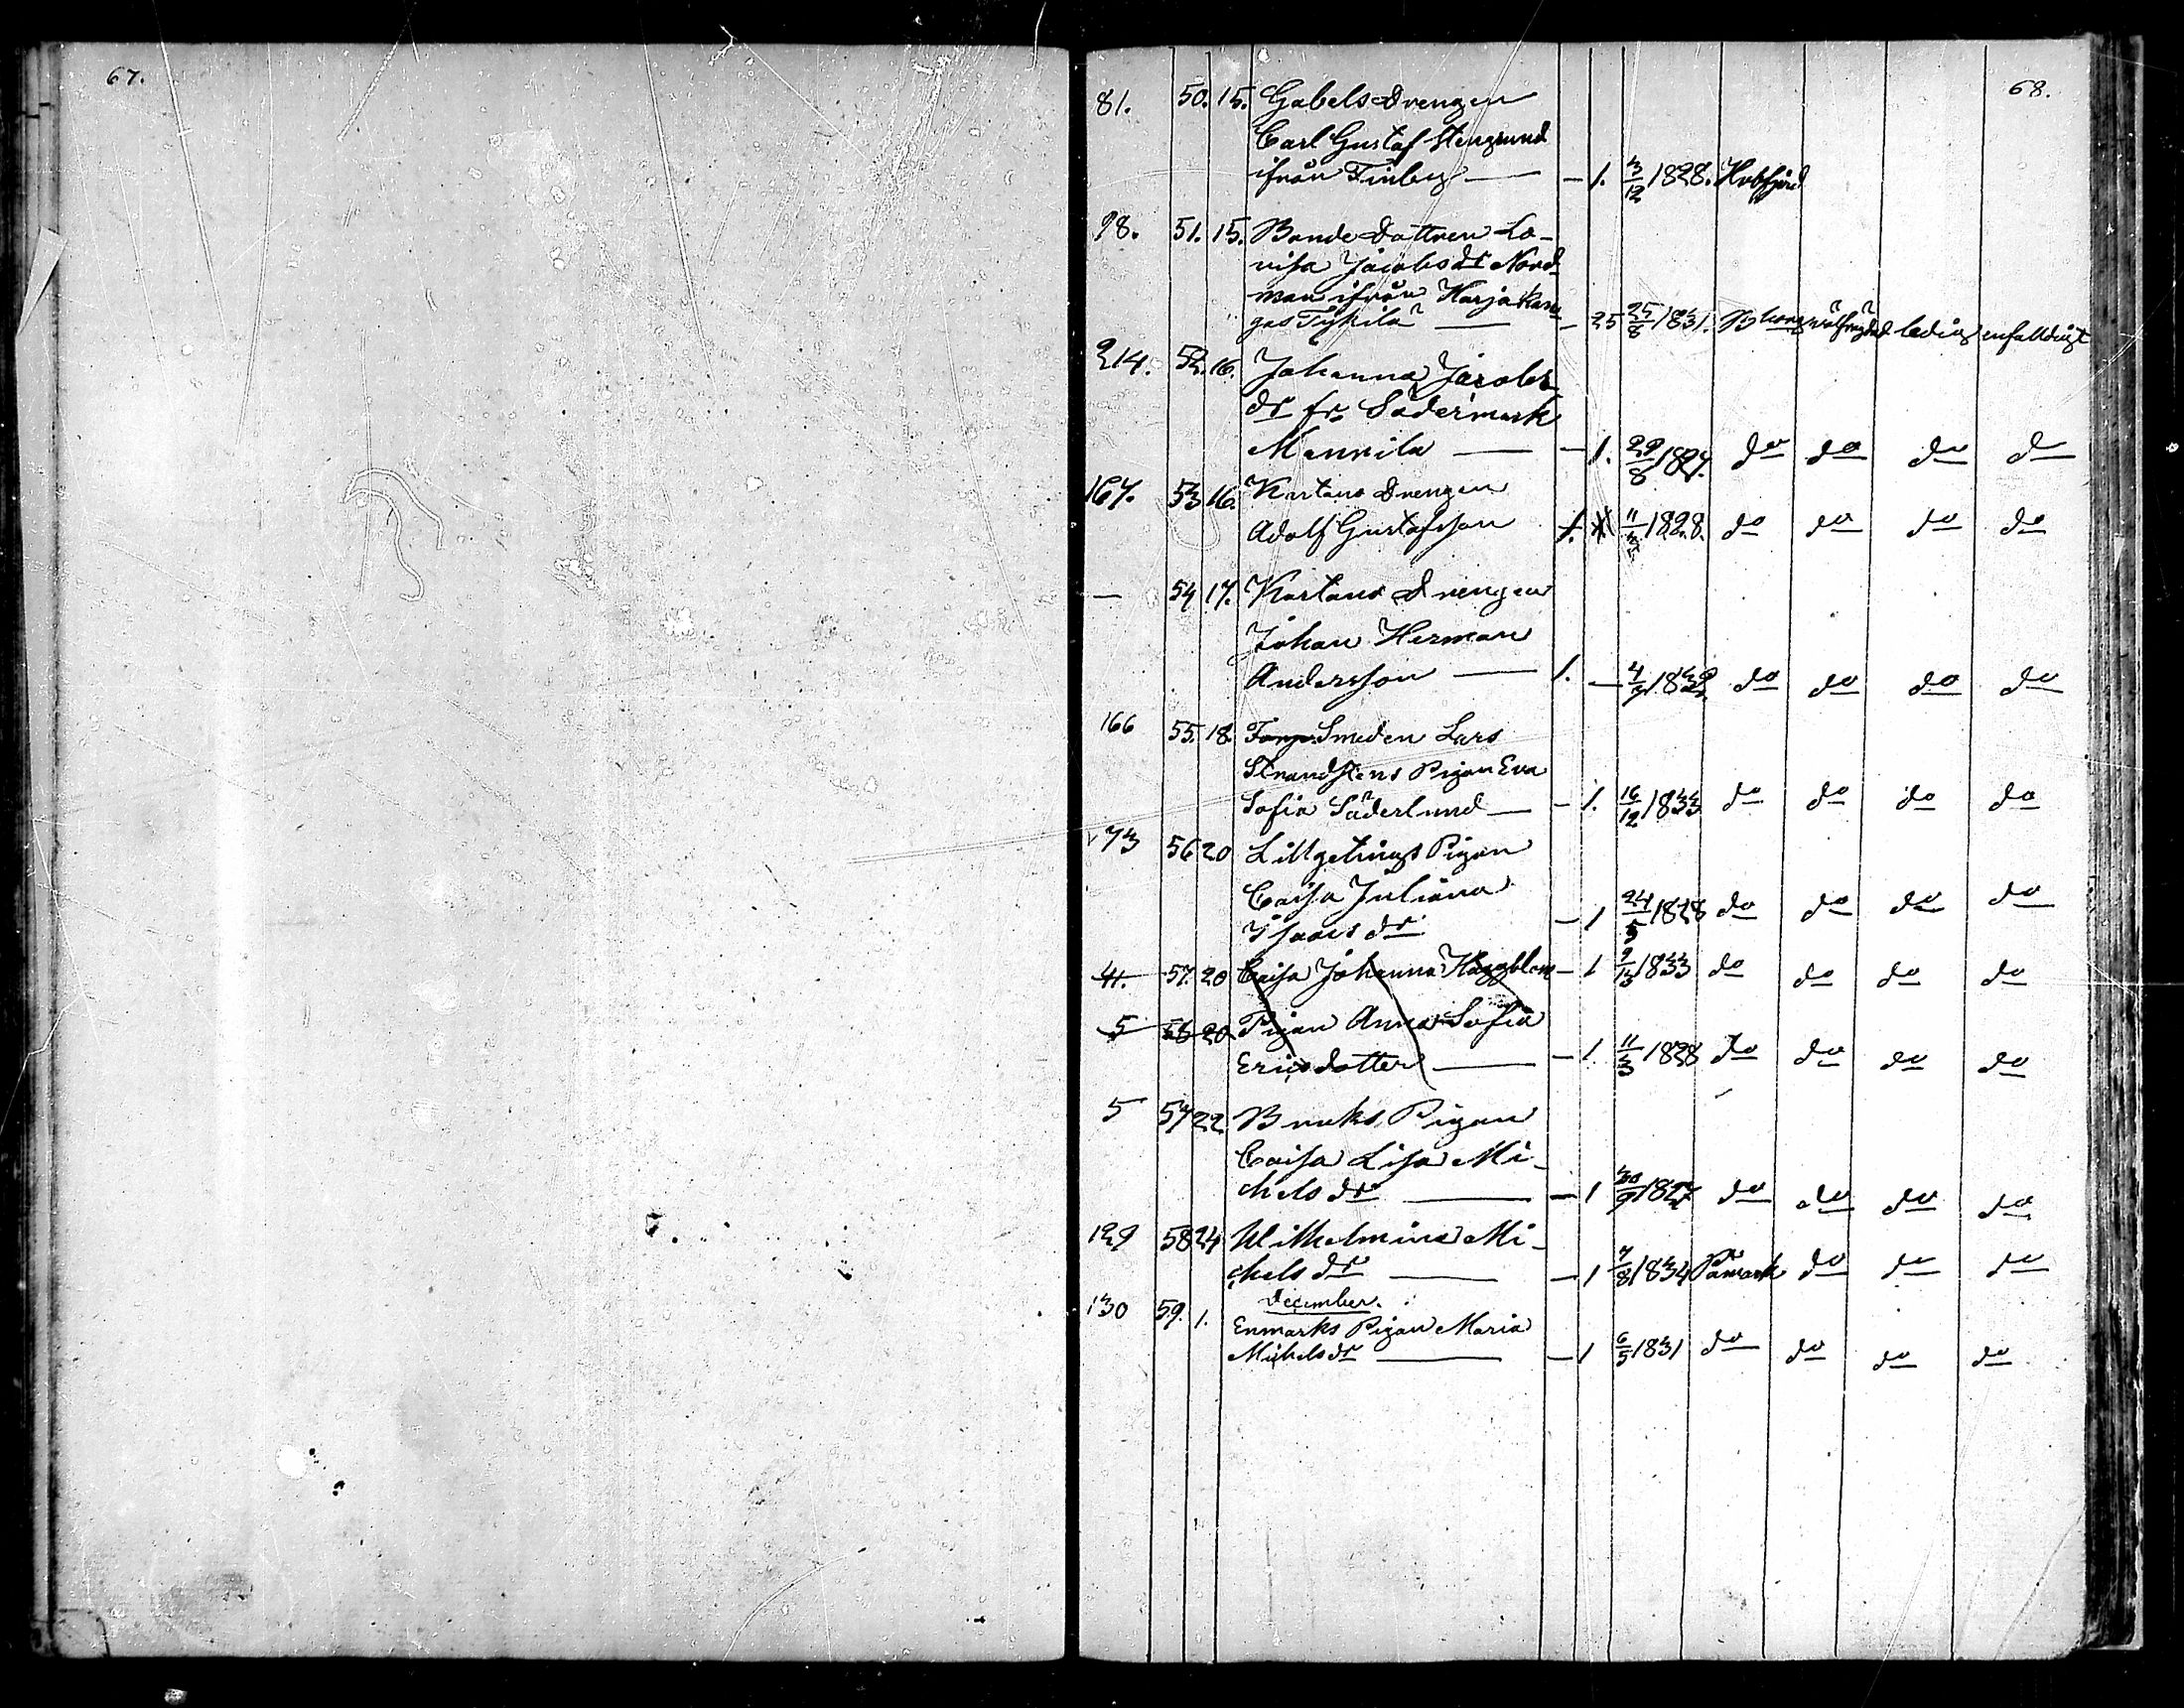 67.
68.
81. 50. 15. Gabels drengen
Carl Gustaf Stengrund
ifrån Finby — — 1. 3/12 1828.
98. 51. 15. Bonde dottren Lo-
visa Jacobs dr Nord-
man ifrån Harjakan-
gas — — 25 25/8 1831. wälfrejdad ledig enfaldigt
214. 52. 16. Johanna Jacobs
dr fr. Södermark
Mannila — — 1. 29/8 1827. do do do do
167. 53 16. Kartano drengen
Adolf Gustafsson 1. 11/3 1828. do do do do
— 54 17. Kartano drengen
Johan Herman
Andersson — 1. — 4/7 do do do do
166 55. 18. Smeden Lars
Strandstens Pigan Eva
Sofia Söderlund — — 1. 16/12 1833 do do do do
73 56 20 Lillgetings Pigan
Caisa Juliana
Isaacs dr — 1 24/5 1828 do do do do
41. 57. 20 Caisa Johanna Häggblom — 1 9/13 1833 do do do do
5 58 20 Pigan Anna Sofia
Ericsdotter — — 1. 11/3 1838 do do do do
5 57 22 Bruks Pigan
Caisa Lisa Mi-
chels dr — — 1 30/9 1827 do do do do
129 58 24 Wilhelmina Mi-
chels dr — — 1 7/8 1834 Påmark do do do
December.
130 59. 1. Enmarks Pigan Maria
Michels dr — — 1 6/5 1831 do do do do